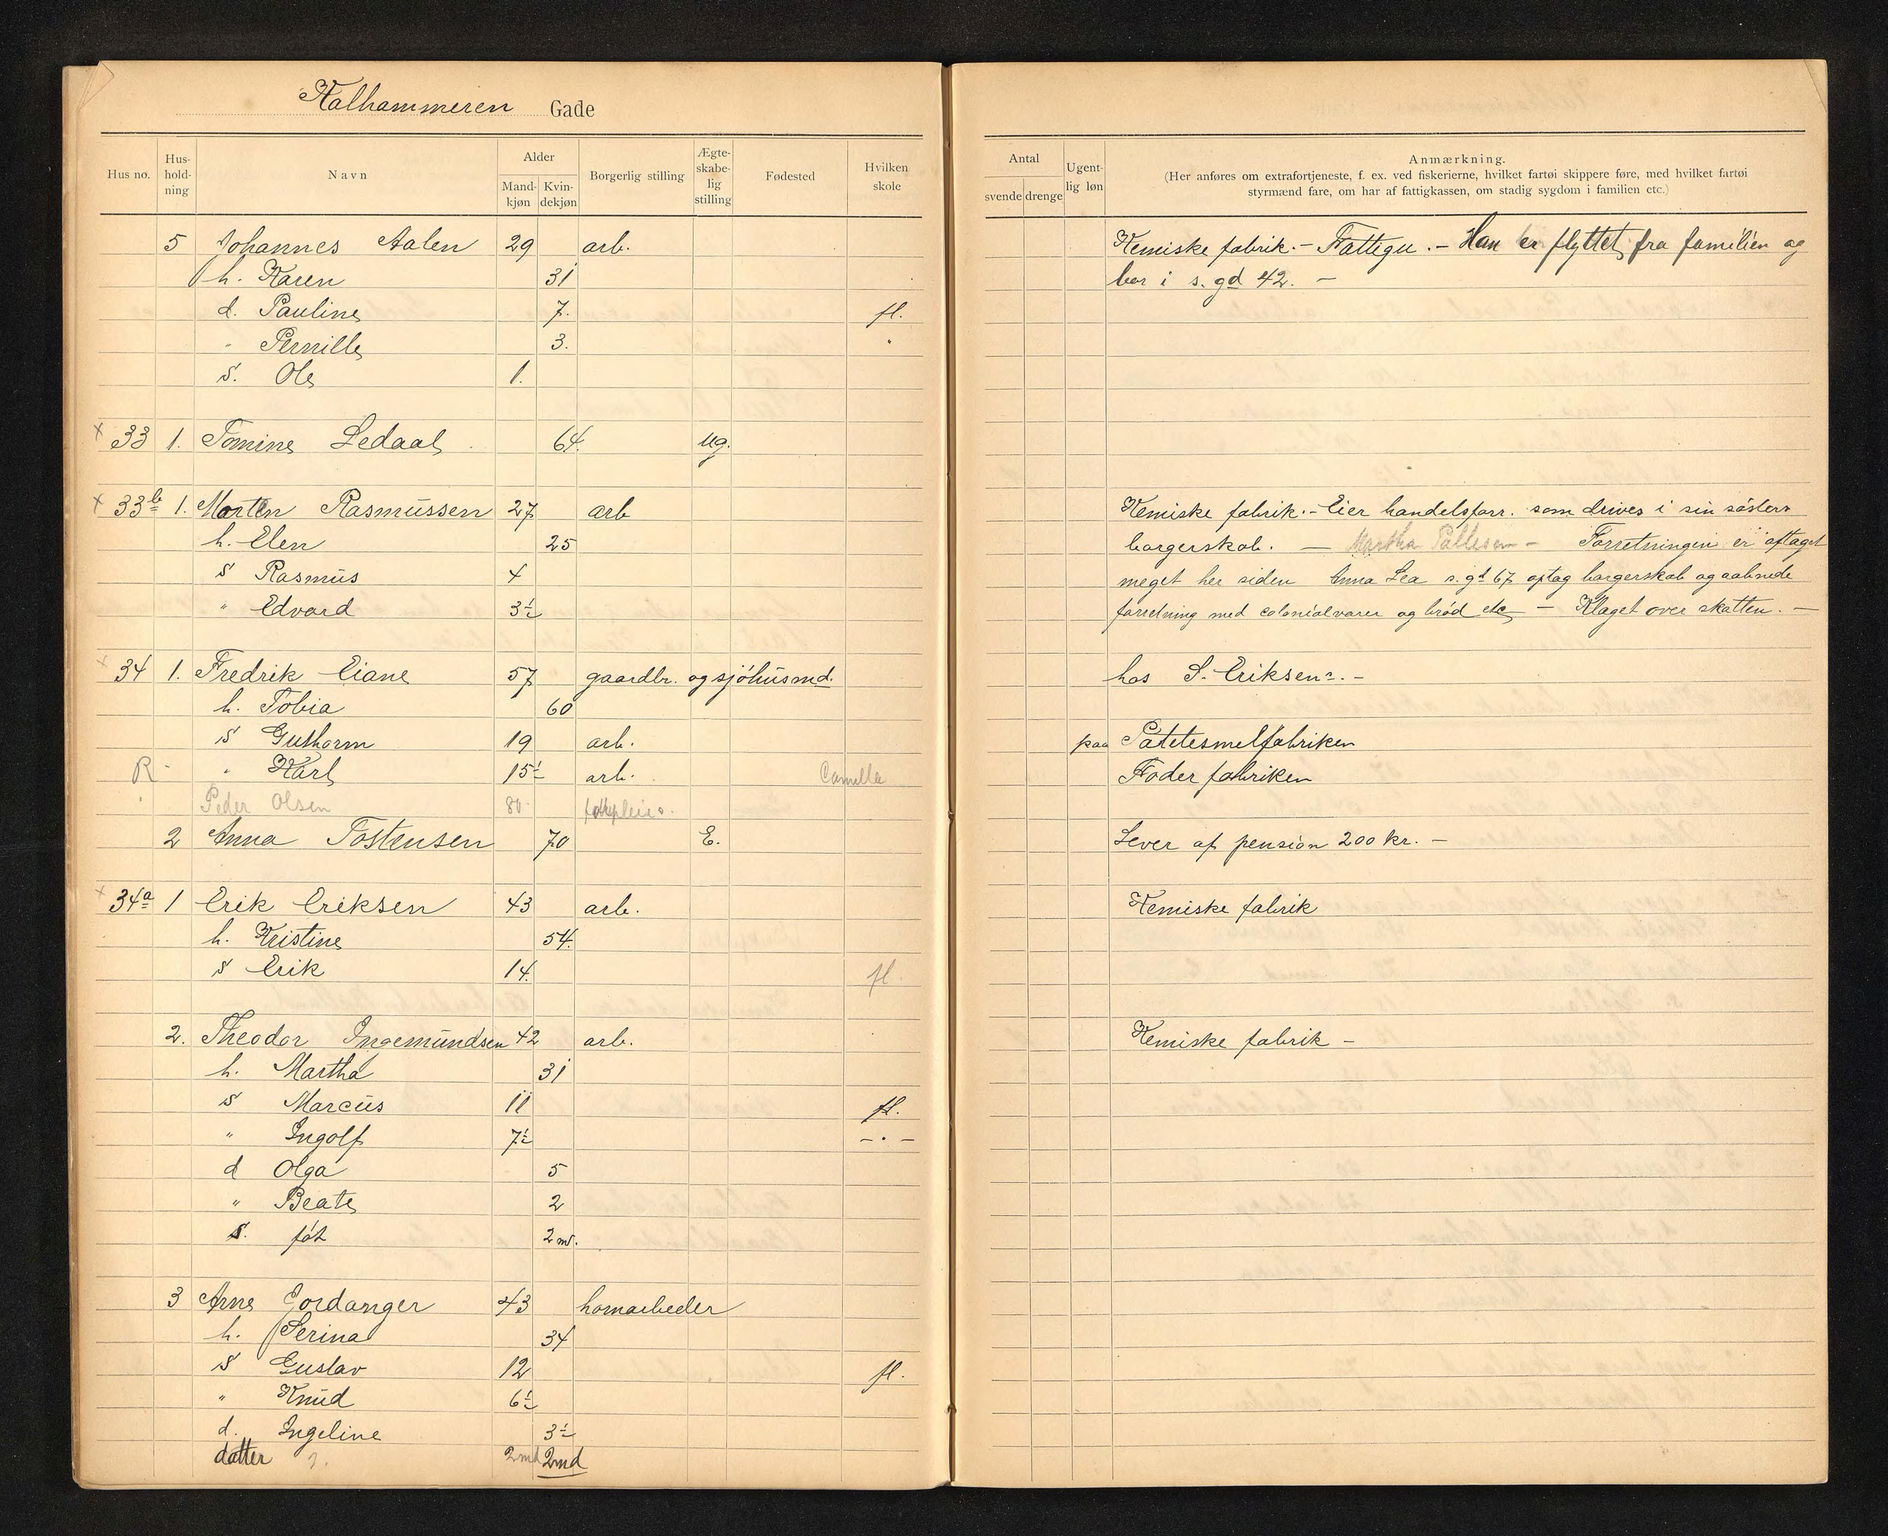 Kalhammeren Gade
Hus no. Hus-hold-ning Navn Alder Mand-kjøn Kvin-dekjøn Borgerlig stilling Ægte-skabe-lig stilling Fødested Hvilken skole
Antal svende drenge Ugent-lig løn Anmærkning.
(Her anføres om extrafortjeneste, f. ex. ved fiskerierne, hvilket fartøi skippere føre, med hvilket fartøi
styrmænd fare, om har af fattigkassen, om stadig sygdom i familien etc.)
5 Johannes Aalen 29 arb. Kemiske fabrik. – Fattigu. – Han er flyttet fra familien og
h. Karen 31 bor i s. gd 42. –
d. Pauline 7. fl.
" Pernille 3. "
s. Ole 1.
x 33 1. Tomine Ledaal 64. ug.
x 33b 1. Morten Rasmussen 27 arb Kemiske fabrik. – Eier handelsforr. som drives i sin søsters
h. Elen 25 borgerskab. – Martha Pallesen – Forretningen er aftaget
s Rasmus 4 meget her siden Anna Lea s. gd 67 optog borgerskab og aabnede
" Edvard 3½ forretning med colonialvarer og brød etc – Klaget over skatten. –
x 34 1. Fredrik Eiane 57 gaardbr. og sjøhusmd. hos S. Eriksen. –
h. Tobia 60
s Guthorm 19 arb. paa Potetesmelfabriken
R " Karl 15½ arb. Camilla Foderfabriken
Peder Olsen 80
2 Anna Tostensen 70 E. Lever af pension 200 kr. –
x 34a 1 Erik Eriksen 43 arb. Kemiske fabrik
h. Kristine 54.
s Erik 14. fl.
2. Theodor Ingemundsen 42 arb. Kemiske fabrik –
h. Martha 31
s Marcus 11 fl.
" Ingolf 7½ – " –
d Olga 5
" Beate 2
s. født 2 m.
3 Arne Jordanger 43 havnarbeder
h. Serina 34
s Gustav 12 fl.
" Knud 6½
d. Ingeline 3½
datter 2 md 2md